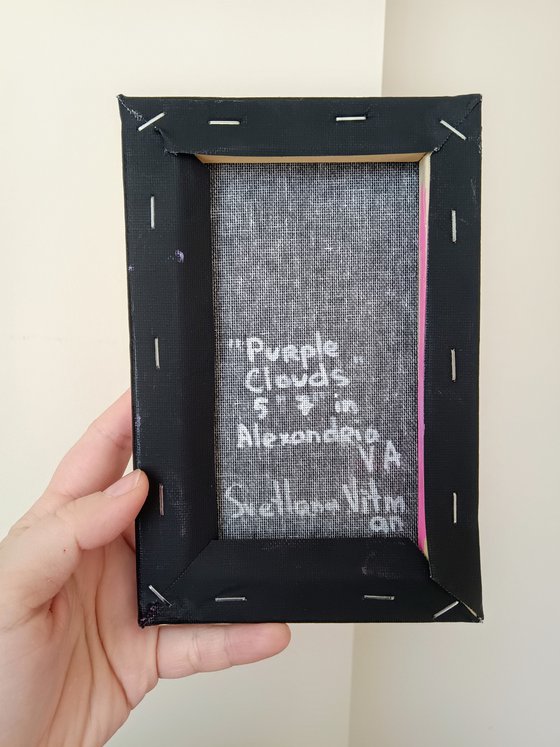 "Purple
Clouds"
5" 7" in
Alexandria
VA
Svetlana Vitm
an